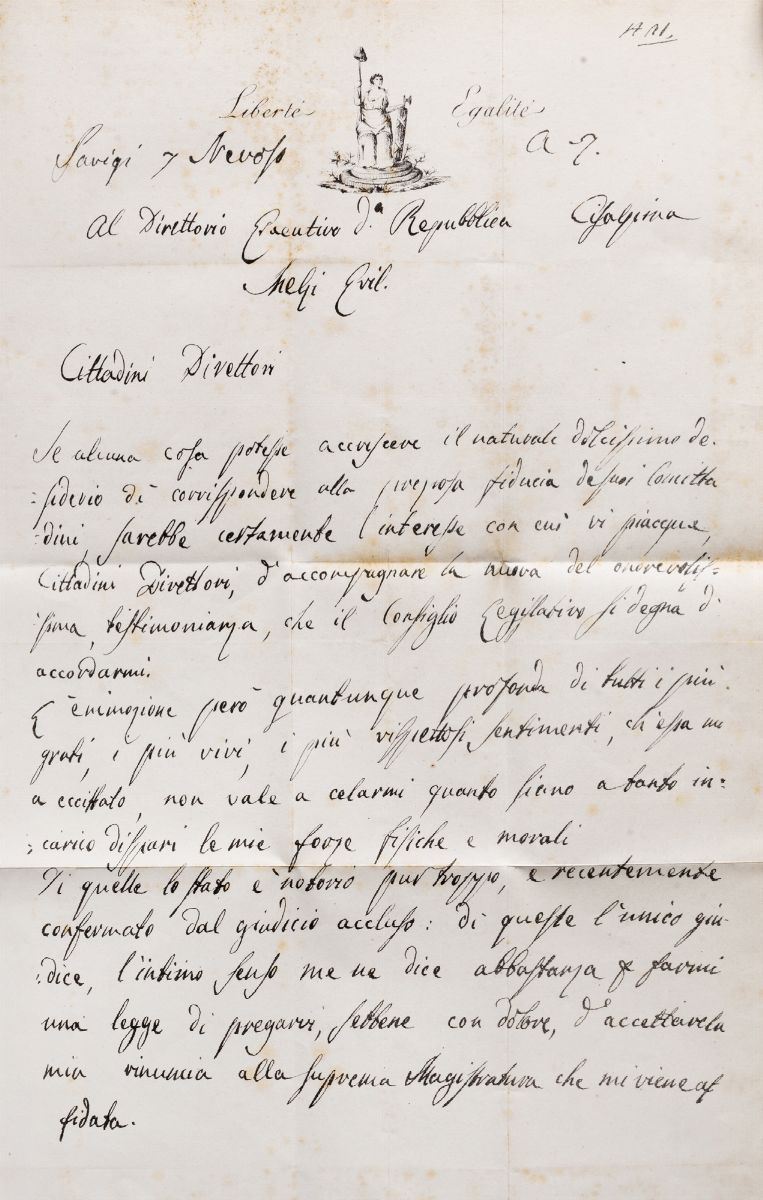 Liberté Egalité
Parigi 7 Nevoso A 7.
Al Direttorio Esecutivo d.a Repubblica Cisalpina
Melzi Eril.
Cittadini Direttori
Se alcuna cosa potesse accrescere il naturale dolcissimo de-
:siderio di corrispondere alla preziosa fiducia de suoi Concitta
:dini, sarebbe certamente l'interesse con cui vi piacque,
Cittadini Direttori, d'accompagnare la nuova del onorevolis=
:sima, testimonianza, che il Consiglio Legislativo si degna d'
accordarmi.
L'emozione però quantunque profonda di tutti i più
grati, i più vivi, i più rispettosi sentimenti, ch'essa mi
a eccitato, non vale a celarmi quanto siano a tanto in=
:carico dispari le mie forze fisiche e morali
Di quelle lo stato è notorio pur troppo, e recentemente
confermato dal giudicio accluso: di queste l'unico giu-
:dice, l'intimo senso me ne dice abbastanza farmi
una legge di pregarvi, sebbene con dolore, d'accettare la
mia rinuncia alla suprema Magistratura che mi viene af
fidata.